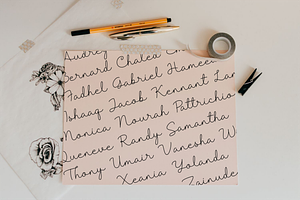 Audrey
Bernard Chalea Em
Fadhel Gabriel Hameed
Ishaaq Jacob Kennant Lar
Monica Nourah Pattrichio
Queneve Randy Samantha
Thony Umair Vanesha W
Xeania Yolanda
Zainude